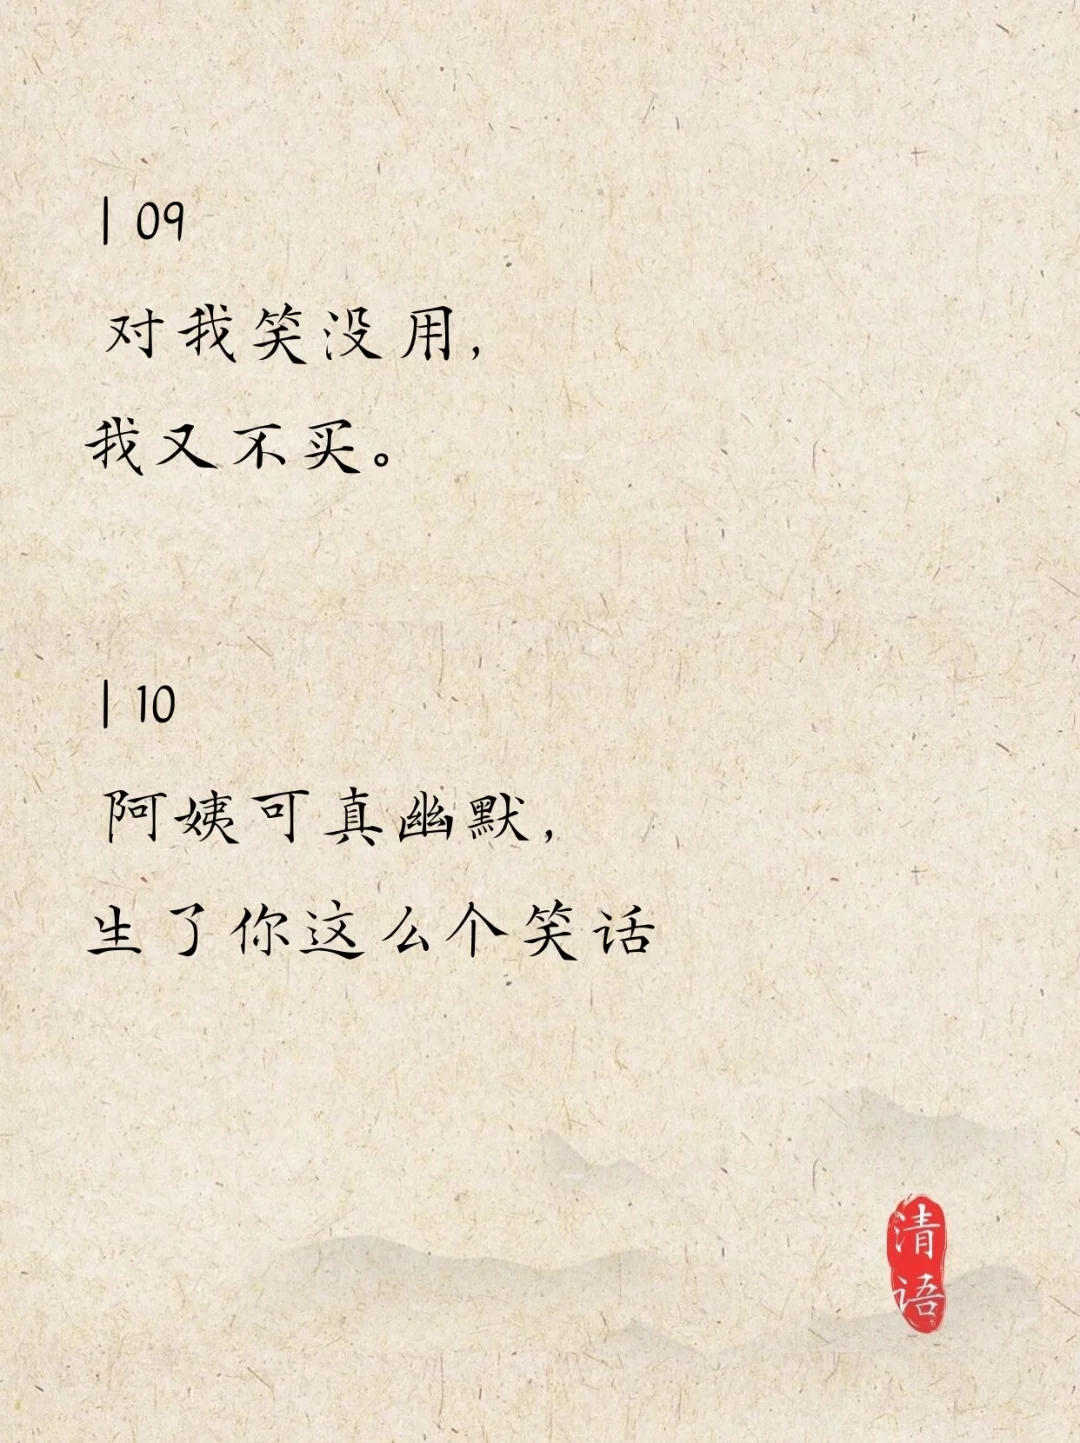 | 09
对我笑没用,
我又不买。
| 10
阿姨可真幽默,
生了你这么个笑话
清语